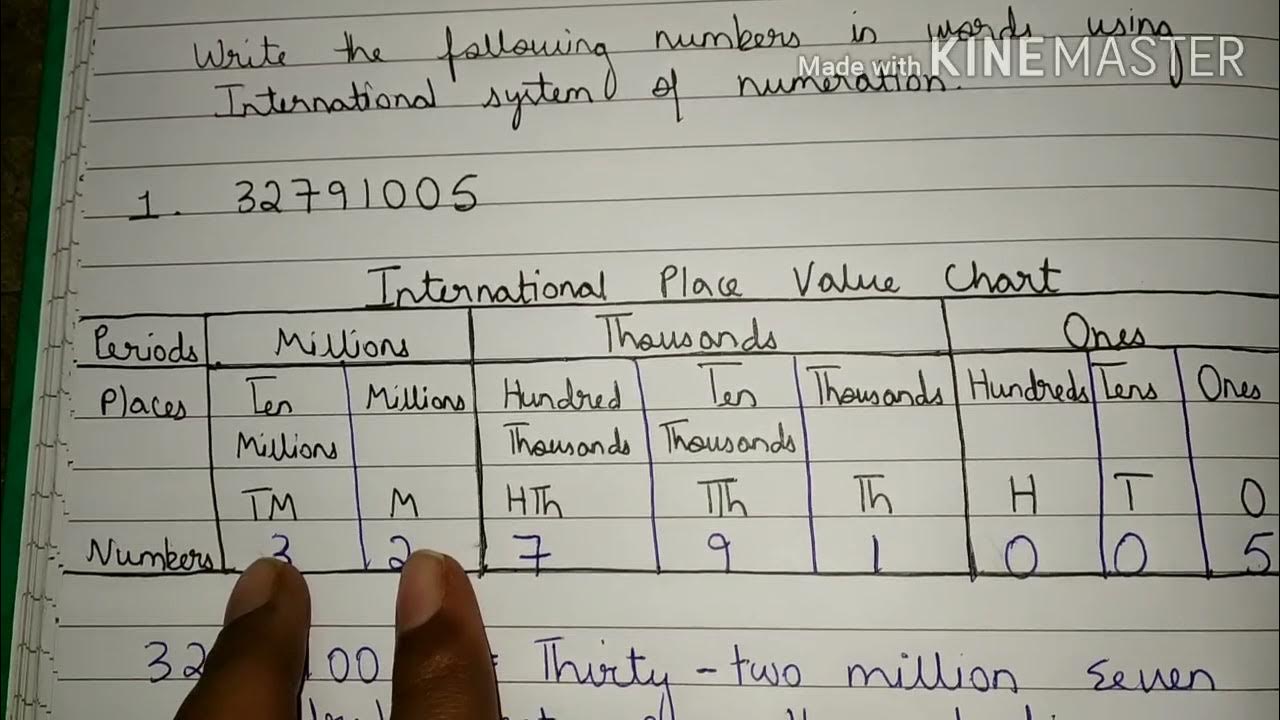 Write the following numbers in words using
Made with KINEMASTER
International system of numeration.
1. 32791005
International Place Value Chart
Periods Millions Thousands Ones
Places Ten Millions Hundred Ten Thousands Hundreds Tens Ones
Millions Thousands Thousands
TM M HTh TTh Th H T O
Numbers 3 2 7 9 1 0 0 5
32 100 Thirty-two million seven